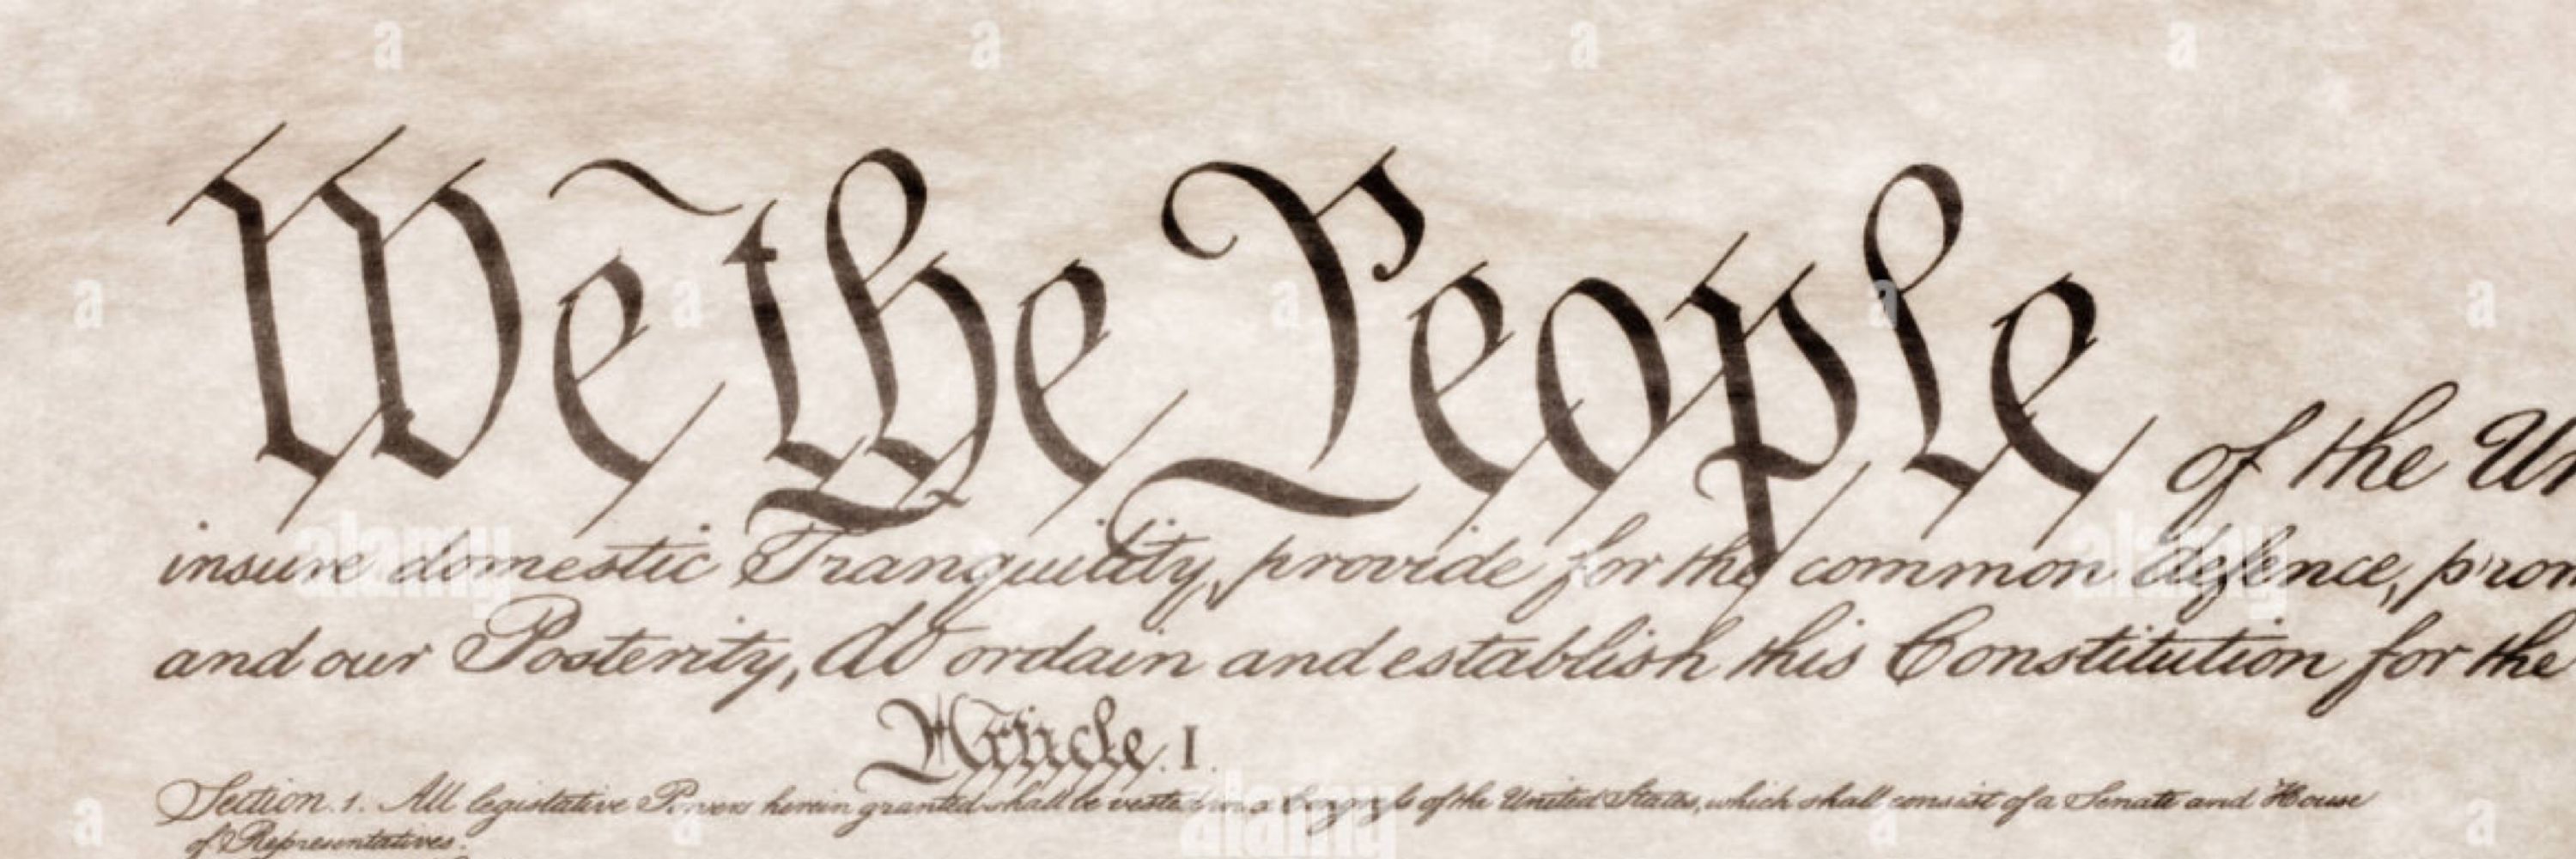 We the People of the Un
insure domestic Tranquility, provide for the common defence, prom
and our Posterity, do ordain and establish this Constitution for the
Article. I.
Section. 1. All legislative Powers herein granted shall be vested in a Congress of the United States, which shall consist of a Senate and House
of Representatives.